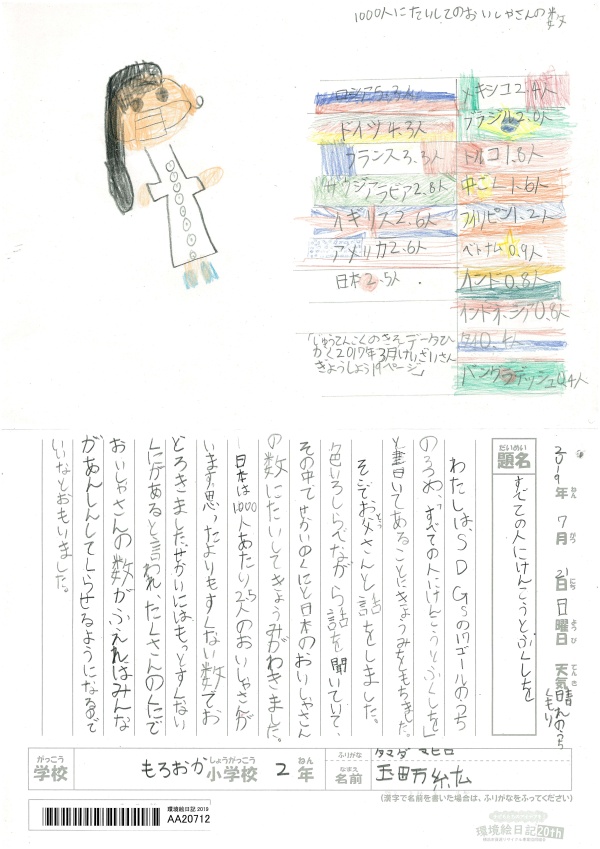 1000人にたいしてのおいしゃさんの数
ロシア5.3人
ドイツ4.3人
フランス3.3人
サウジアラビア2.8人
イギリス2.6人
アメリカ2.6人
日本2.5人
メキシコ2.4人
ブラジル2.0人
トルコ1.8人
中ごく1.6人
フィリピン1.2人
ベトナム0.9人
インド0.8人
インドネシア0.8人
タイ0.4人
バングラデッシュ0.4人
「じゅうてんこくのきそデータひ
かく2017年3月けいざいさん
ぎょうしょう19ページ」
2019年 7月 21日 日曜日 天気 晴れのちくもり
ねん がつ にち ようび てんき
だいめい
題名
すべての人にけんこうとふくしを
わたしは、SDGsの17ゴールのうち
のろめ、「すべての人にけんこうとふくしを」
と書いてあることにきょうみをもちました。
そこでお父さんと話をしました。
色いろしらべながら話を聞いていて、
その中でせかいのくにと日本のおいしゃさん
の数にたいしてきょうみがわきました。
日本は1000人あたり2.5人のおいしゃさんが
います。思ったよりもすくない数でお
どろきました。せかいにはもっとすくない
くにがあると言われ、たくさんのくにで
おいしゃさんの数がふえればみんな
があんしんしてくらせるようになるので
いいなとおもいました。
がっこう
学校
もろおか小学校 2年
しょうがっこう ねん
ふりがな
タマダ マヒロ
なまえ
名前
玉田万紘
(漢字で名前を書いた場合は、ふりがなをふってください)
環境絵日記2019
AA20712
環境絵日記20th